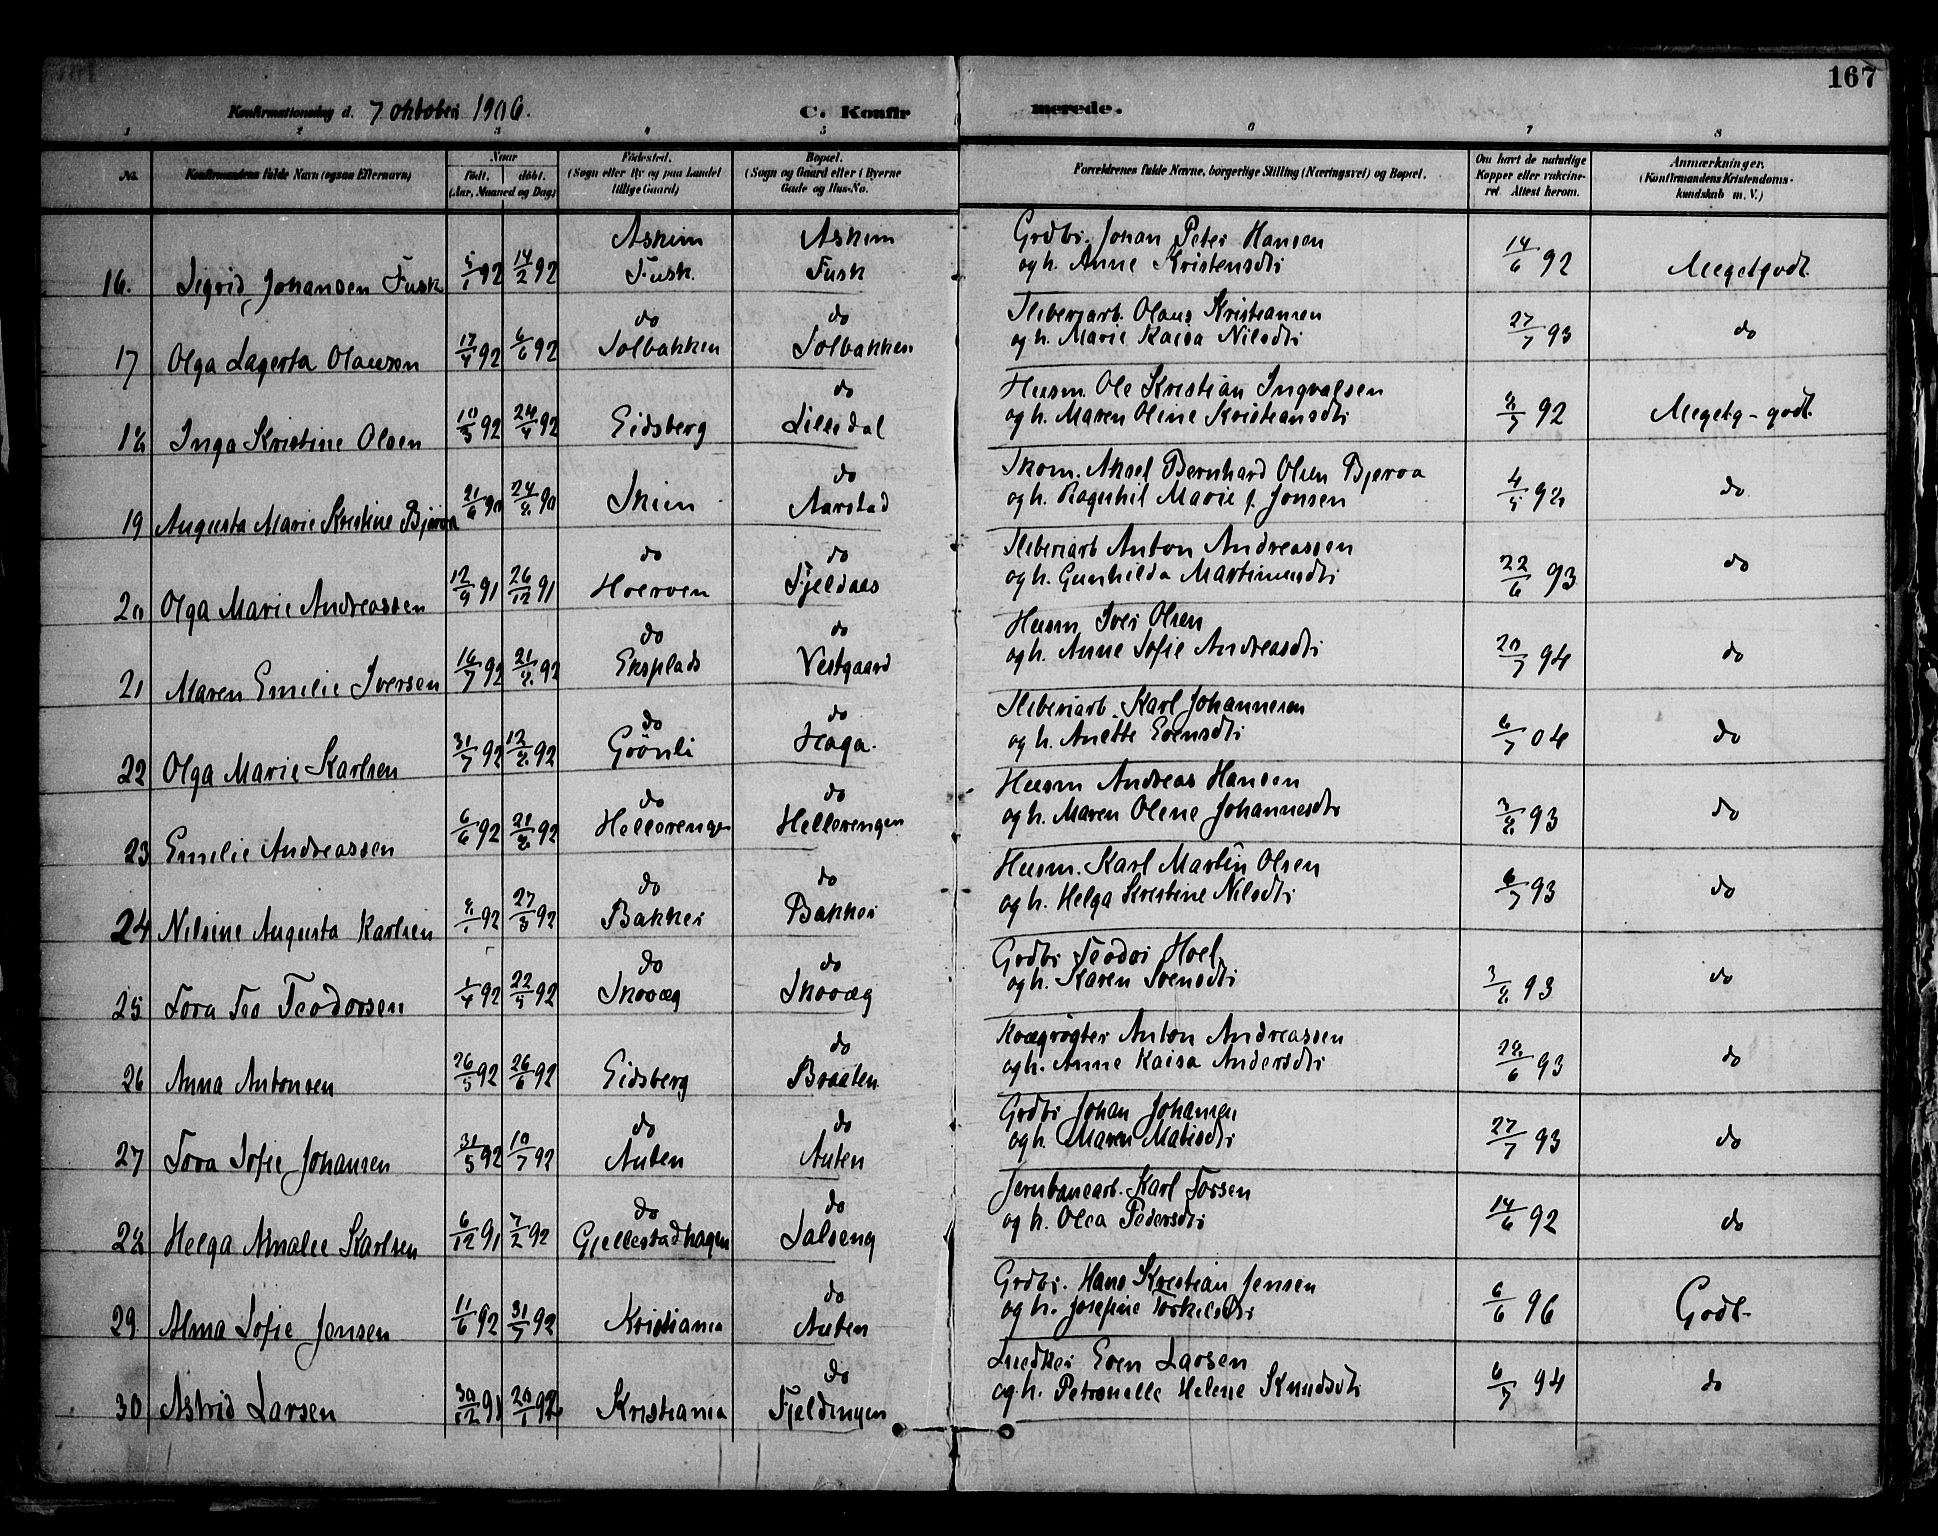 167
Konfirmationsdag d. 7 oktober 1906. C. Konfirmerede.
1 2 3 4 5 6 7 8
No. Konfirmandens fulde Navn (ogsaa Efternavn) Naar født. døbt. (Aar, Maaned og Dag) Fødested. (Sogn eller By og paa Landet tillige Gaard) Bopæl. (Sogn og Gaard eller i Byerne Gade og Hus-No. Forældrenes fulde Navne, borgerlige Stilling (Næringsvei) og Bopæl. Om havt de naturlige Kopper eller vaccineret Attest herom. Anmærkninger. (Konfirmandens Kristendomskundskab m. V.)
Askim Askim Grdbr. Johan Peter Hansen
16. Sigrid Johansen Fusk 5/1 92 14/2 92 Fusk Fusk og h. Anne Kristensdtr 14/6 92 Megetgodt.
do do Sliberiarb. Olaus Kristiansen
17 Olga Lagerta Olausen 17/4 92 6/6 92 Solbakken Solbakken og h. Marie Kaisa Nilsdtr 27/7 93 do
do Husm. Ole Kristian Ingvalsen
18 Inga Kristine Olsen 10/3 92 24/4 92 Eidsberg Lilledal og h. Maren Oline Kristiansdtr 8/7 92 Megetg - godt.
do Skom. Aksel Bernhard Olsen Bjerva
19 Augusta Marie Kristine Bjerva 21/6 90 24/8 90 Skien Aarstad og h. Ragnhil Marie f. Jonsen 4/5 92 do
do do Sliberiarb Anton Andreassen
20 Olga Marie Andreassen 12/9 91 26/12 91 Hoerven Fjeldaas og h. Gunhilda Martinusdtr 22/6 93 do
do do Husm Iver Olsen
21 Maren Emilie Iversen 16/7 92 21/8 92 Eksplads Vestgaard og h. Anne Sofie Andreasdtr 20/7 94 do
do do Sliberiarb. Karl Johannesen
22 Olga Marie Karlsen 31/7 92 12/8 92 Grönli Haga. og h. Anette Evensdtr 6/7 04 do
do do Husm Andreas Hansen
23 Emilie Andreassen 6/6 92 21/8 92 Hellerengen Hellerengen og h. Maren Olene Johannesdtr 3/8 93 do
do do Husm. Karl Martin Olsen
24 Nilsine Augusta Karlsen 8/1 92 27/3 92 Bakker Bakker og h. Helga Kristine Nilsdtr 6/7 93 do
do do Grdbr Teodor Hoel
25 Tora Teo Teodorsen 1/4 92 22/5 92 Skovæg Skovæg og h. Karen Svensdtr 3/8 93 do
do Kvægrögter Anton Andreassen
26 Anna Antonsen 26/5 92 26/6 92 Eidsberg Braaten og h. Anne Kaisa Andersdtr 28/6 93 do
do do Grdbr Johan Johansen
27 Tora Sofie Johansen 31/5 92 10/7 92 Auten Auten og h. Maren Matisdtr 27/7 93 do
do do Jernbanearb. Karl Torsen
28 Helga Amalie Karlsen 6/12 91 7/2 92 Gjellestadhagen Salseng og h. Olea Pedersdtr 14/6 92 do
do Grdbr. Hans Kristian Jensen
29 Alma Sofie Jensen 11/6 92 31/7 92 Kristiania Auten og h. Josefine Torkilsdtr 6/6 96 Godt-
do Snedker Even Larsen
30 Astrid Larsen 30/12 91 20/1 92 Kristiania Fjeldingen og h. Petronelle Helene Knudsdtr 6/7 94 do